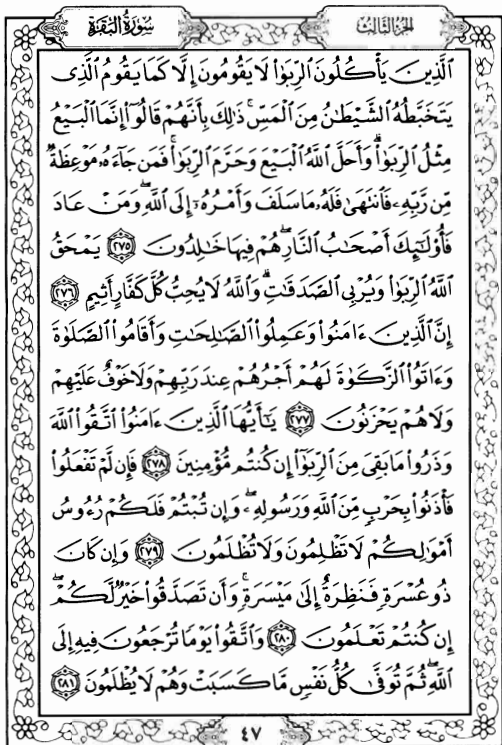 الجزء الثالث
سورة البقرة
ٱلَّذِينَ يَأْكُلُونَ ٱلرِّبَوٰا۟ لَا يَقُومُونَ إِلَّا كَمَا يَقُومُ ٱلَّذِى
يَتَخَبَّطُهُ ٱلشَّيْطَٰنُ مِنَ ٱلْمَسِّ ۚ ذَٰلِكَ بِأَنَّهُمْ قَالُوٓا۟ إِنَّمَا ٱلْبَيْعُ
مِثْلُ ٱلرِّبَوٰا۟ ۗ وَأَحَلَّ ٱللَّهُ ٱلْبَيْعَ وَحَرَّمَ ٱلرِّبَوٰا۟ ۚ فَمَن جَآءَهُۥ مَوْعِظَةٌ
مِّن رَّبِّهِۦ فَٱنتَهَىٰ فَلَهُۥ مَا سَلَفَ وَأَمْرُهُۥٓ إِلَى ٱللَّهِ ۖ وَمَنْ عَادَ
فَأُو۟لَٰٓئِكَ أَصْحَٰبُ ٱلنَّارِ ۖ هُمْ فِيهَا خَٰلِدُونَ ٢٧٥ يَمْحَقُ
ٱللَّهُ ٱلرِّبَوٰا۟ وَيُرْبِى ٱلصَّدَقَٰتِ ۗ وَٱللَّهُ لَا يُحِبُّ كُلَّ كَفَّارٍ أَثِيمٍ ٢٧٦
إِنَّ ٱلَّذِينَ ءَامَنُوا۟ وَعَمِلُوا۟ ٱلصَّٰلِحَٰتِ وَأَقَامُوا۟ ٱلصَّلَوٰةَ
وَءَاتَوُا۟ ٱلزَّكَوٰةَ لَهُمْ أَجْرُهُمْ عِندَ رَبِّهِمْ وَلَا خَوْفٌ عَلَيْهِمْ
وَلَا هُمْ يَحْزَنُونَ ٢٧٧ يَٰٓأَيُّهَا ٱلَّذِينَ ءَامَنُوا۟ ٱتَّقُوا۟ ٱللَّهَ
وَذَرُوا۟ مَا بَقِىَ مِنَ ٱلرِّبَوٰٓا۟ إِن كُنتُم مُّؤْمِنِينَ ٢٧٨ فَإِن لَّمْ تَفْعَلُوا۟
فَأْذَنُوا۟ بِحَرْبٍ مِّنَ ٱللَّهِ وَرَسُولِهِۦ ۖ وَإِن تُبْتُمْ فَلَكُمْ رُءُوسُ
أَمْوَٰلِكُمْ لَا تَظْلِمُونَ وَلَا تُظْلَمُونَ ٢٧٩ وَإِن كَانَ
ذُو عُسْرَةٍ فَنَظِرَةٌ إِلَىٰ مَيْسَرَةٍ ۚ وَأَن تَصَدَّقُوا۟ خَيْرٌ لَّكُمْ ۖ
إِن كُنتُمْ تَعْلَمُونَ ٢٨٠ وَٱتَّقُوا۟ يَوْمًا تُرْجَعُونَ فِيهِ إِلَى
ٱللَّهِ ۖ ثُمَّ تُوَفَّىٰ كُلُّ نَفْسٍ مَّا كَسَبَتْ وَهُمْ لَا يُظْلَمُونَ ٢٨١
٤٧